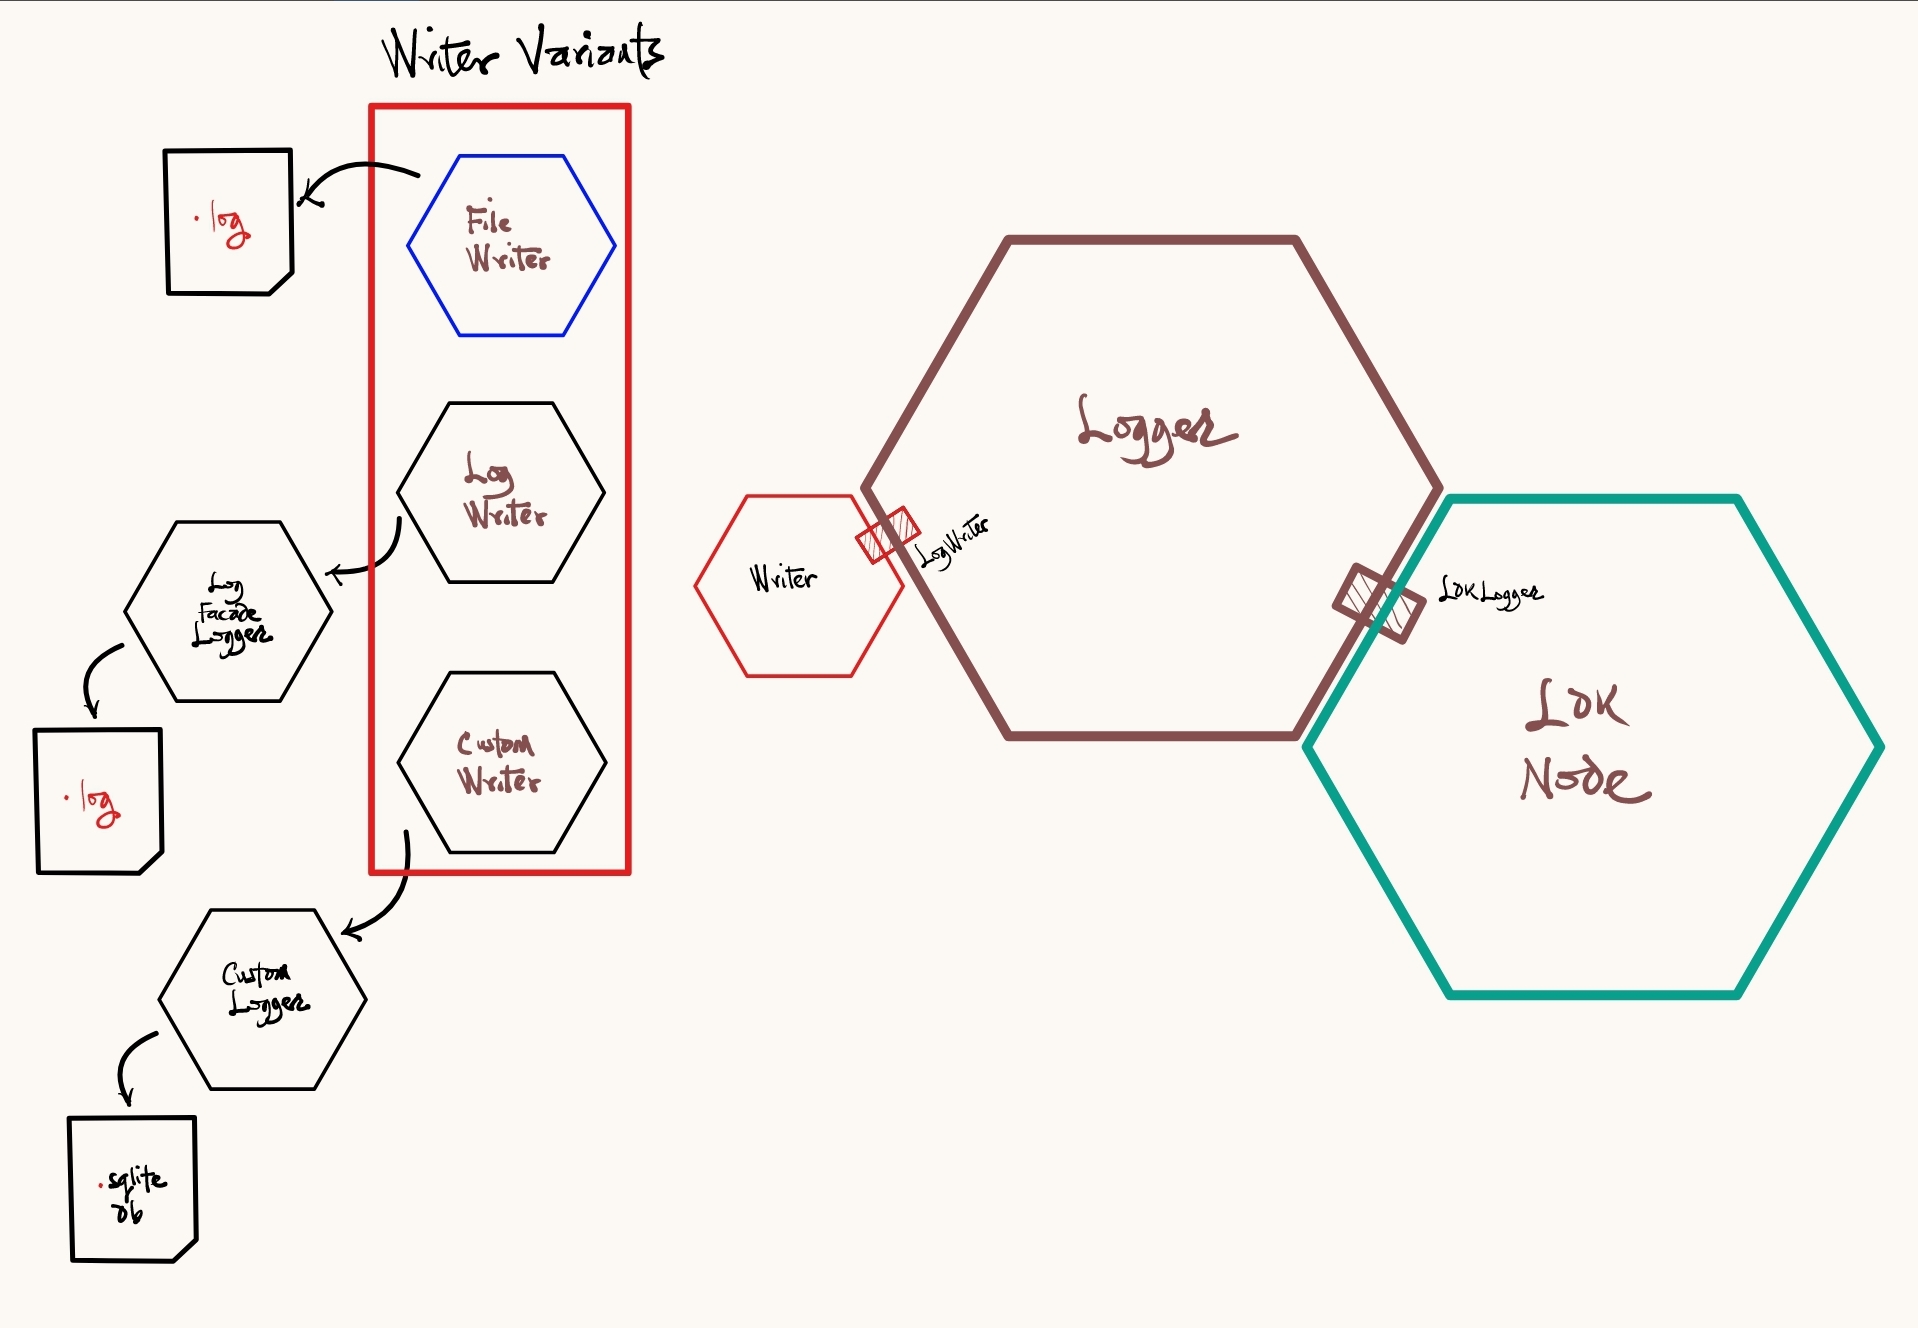 Writer Variants
.log
File
Writer
Log
Writer
Log
Facade
Logger
.log
Custom
Writer
Custom
Logger
.sqlite
db
Writer
LogWriter
Logger
LDK Logger
LDK
Node